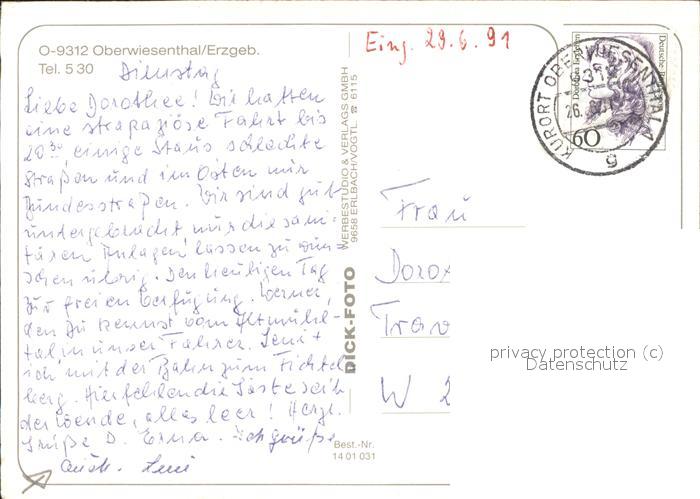 O-9312 Oberwiesenthal/Erzgeb.
Tel. 5 30
Eing. 29.6.91
Dienstag
Liebe Dorothee! Wir hatten
eine strapaziöse Fahrt bis
20 30, einige Staus schlechte
Straßen und im Osten nur
Bundesstraßen. Wir sind gut
untergebracht nur die sani-
tären Anlagen lassen zu wün-
schen übrig. Den heutigen Tag
zur freien Verfügung. Werner,
den Du kennst vom Altmühl-
tal in unser Fahrer. Leni +
ich mit der Bahn zum Fichtel
berg. Hier fehlen die Gäste seit
der Wende, alles leer! Herzl.
Grüße D. Erna. Ich grüße
auch. Leni
WERBESTUDIO & VERLAGS GMBH
9658 ERLBACH/VOGTL. ☎ 6115
DICK-FOTO
Best.-Nr.
14 01 031
KURORT OBERWIESENTHAL 1
g
60
Deutsche
Frau
Doro
W 2
privacy protection (c)
Datenschutz